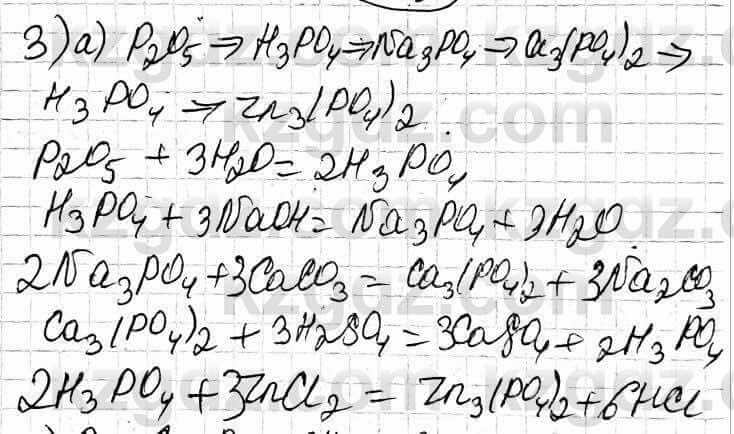 3) а) P₂O₅ → H₃PO₄ → Na₃PO₄ → Ca₃(PO₄)₂ →
H₃PO₄ → Zn₃(PO₄)₂.
P₂O₅ + 3H₂O = 2H₃PO₄
H₃PO₄ + 3NaOH = Na₃PO₄ + 3H₂O.
2Na₃PO₄ + 3CaCO₃ = Ca₃(PO₄)₂ + 3Na₂CO₃
Ca₃(PO₄)₂ + 3H₂SO₄ = 3CaSO₄ + 2H₃PO₄
2H₃PO₄ + 3ZnCl₂ = Zn₃(PO₄)₂ + 6HCl